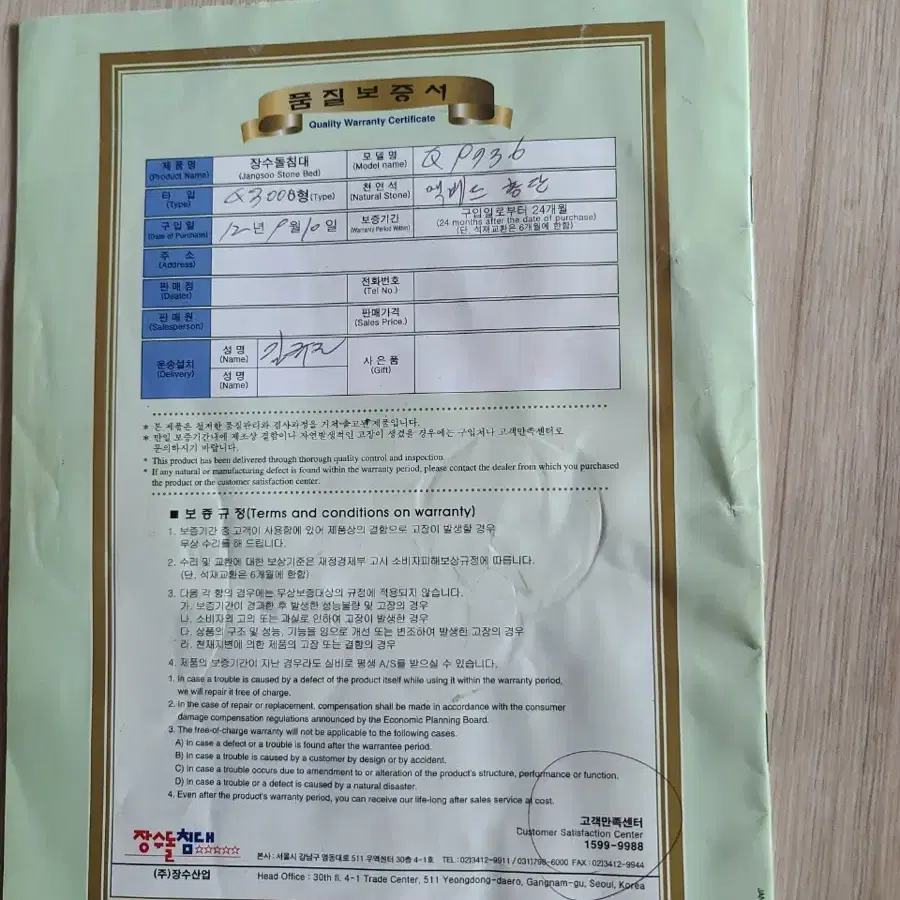 품질보증서
Quality Warranty Certificate
제품명 (Product Name) 장수돌침대 (Jangsoo Stone Bed) 모델명 (Model name) Q P936
타입 (Type) Q3008형(Type) 천연석 (Natural Stone)
구입일 (Date of Purchase) 12년 9월 10일 보증기간 (Warranty Period Within) 구입일로부터 24개월 (24 months after the date of purchase) (단, 석재교환은 6개월에 한함)
주소 (Address)
판매점 (Dealer) 전화번호 (Tel No.)
판매원 (Salesperson) 판매가격 (Sales Price.)
운송설치 (Delivery) 성명 (Name) 사은품 (Gift)
성명 (Name)
* 본 제품은 철저한 품질관리와 검사과정을 거쳐 출고된 제품입니다.
* 만일 보증기간내에 제조상 결함이나 자연발생적인 고장이 생겼을 경우에는 구입처나 고객만족센터로
문의하시기 바랍니다.
* This product has been delivered through thorough quality control and inspection.
* If any natural or manufacturing defect is found within the warranty period, please contact the dealer from which you purchased
the product or the customer satisfaction center.
■ 보증규정(Terms and conditions on warranty)
1. 보증기간 중 고객이 사용함에 있어 제품상의 결함으로 고장이 발생할 경우
무상 수리를 해 드립니다.
2. 수리 및 교환에 대한 보상기준은 재정경제부 고시 소비자피해보상규정에 따릅니다.
(단, 석재교환은 6개월에 한함)
3. 다음 각 항의 경우에는 무상보증대상의 규정에 적용되지 않습니다.
가. 보증기간이 경과한 후 발생한 성능불량 및 고장의 경우
나. 소비자의 고의 또는 과실로 인하여 고장이 발생한 경우
다. 상품의 구조 및 성능, 기능을 임으로 개선 또는 변조하여 발생한 고장의 경우
라. 천재지변에 의한 제품의 고장 또는 결함의 경우
4. 제품의 보증기간이 지난 경우라도 실비로 평생 A/S를 받으실 수 있습니다.
1. In case a trouble is caused by a defect of the product itself while using it within the warranty period,
we will repair it free of charge.
2. In the case of repair or replacement, compensation shall be made in accordance with the consumer
damage compensation regulations announced by the Economic Planning Board.
3. The free-of-charge warranty will not be applicable to the following cases.
A) In case a defect or a trouble is found after the warrantee period.
B) In case a trouble is caused by a customer by design or by accident.
C) In case a trouble occurs due to amendment to or alteration of the product's structure, performance or function.
D) In case a trouble or a defect is caused by a natural disaster.
4. Even after the product's warranty period, you can receive our life-long after sales service at cost.
고객만족센터
Customer Satisfaction Center
1599-9988
장수돌침대
(주)장수산업
본사 : 서울시 강남구 영동대로 511 무역센터 30층 4-1호 TEL : 02)3412-9911 / 031)798-6000 FAX : 02)3412-9944
Head Office : 30th fl. 4-1 Trade Center, 511 Yeongdong-daero, Gangnam-gu, Seoul, Korea